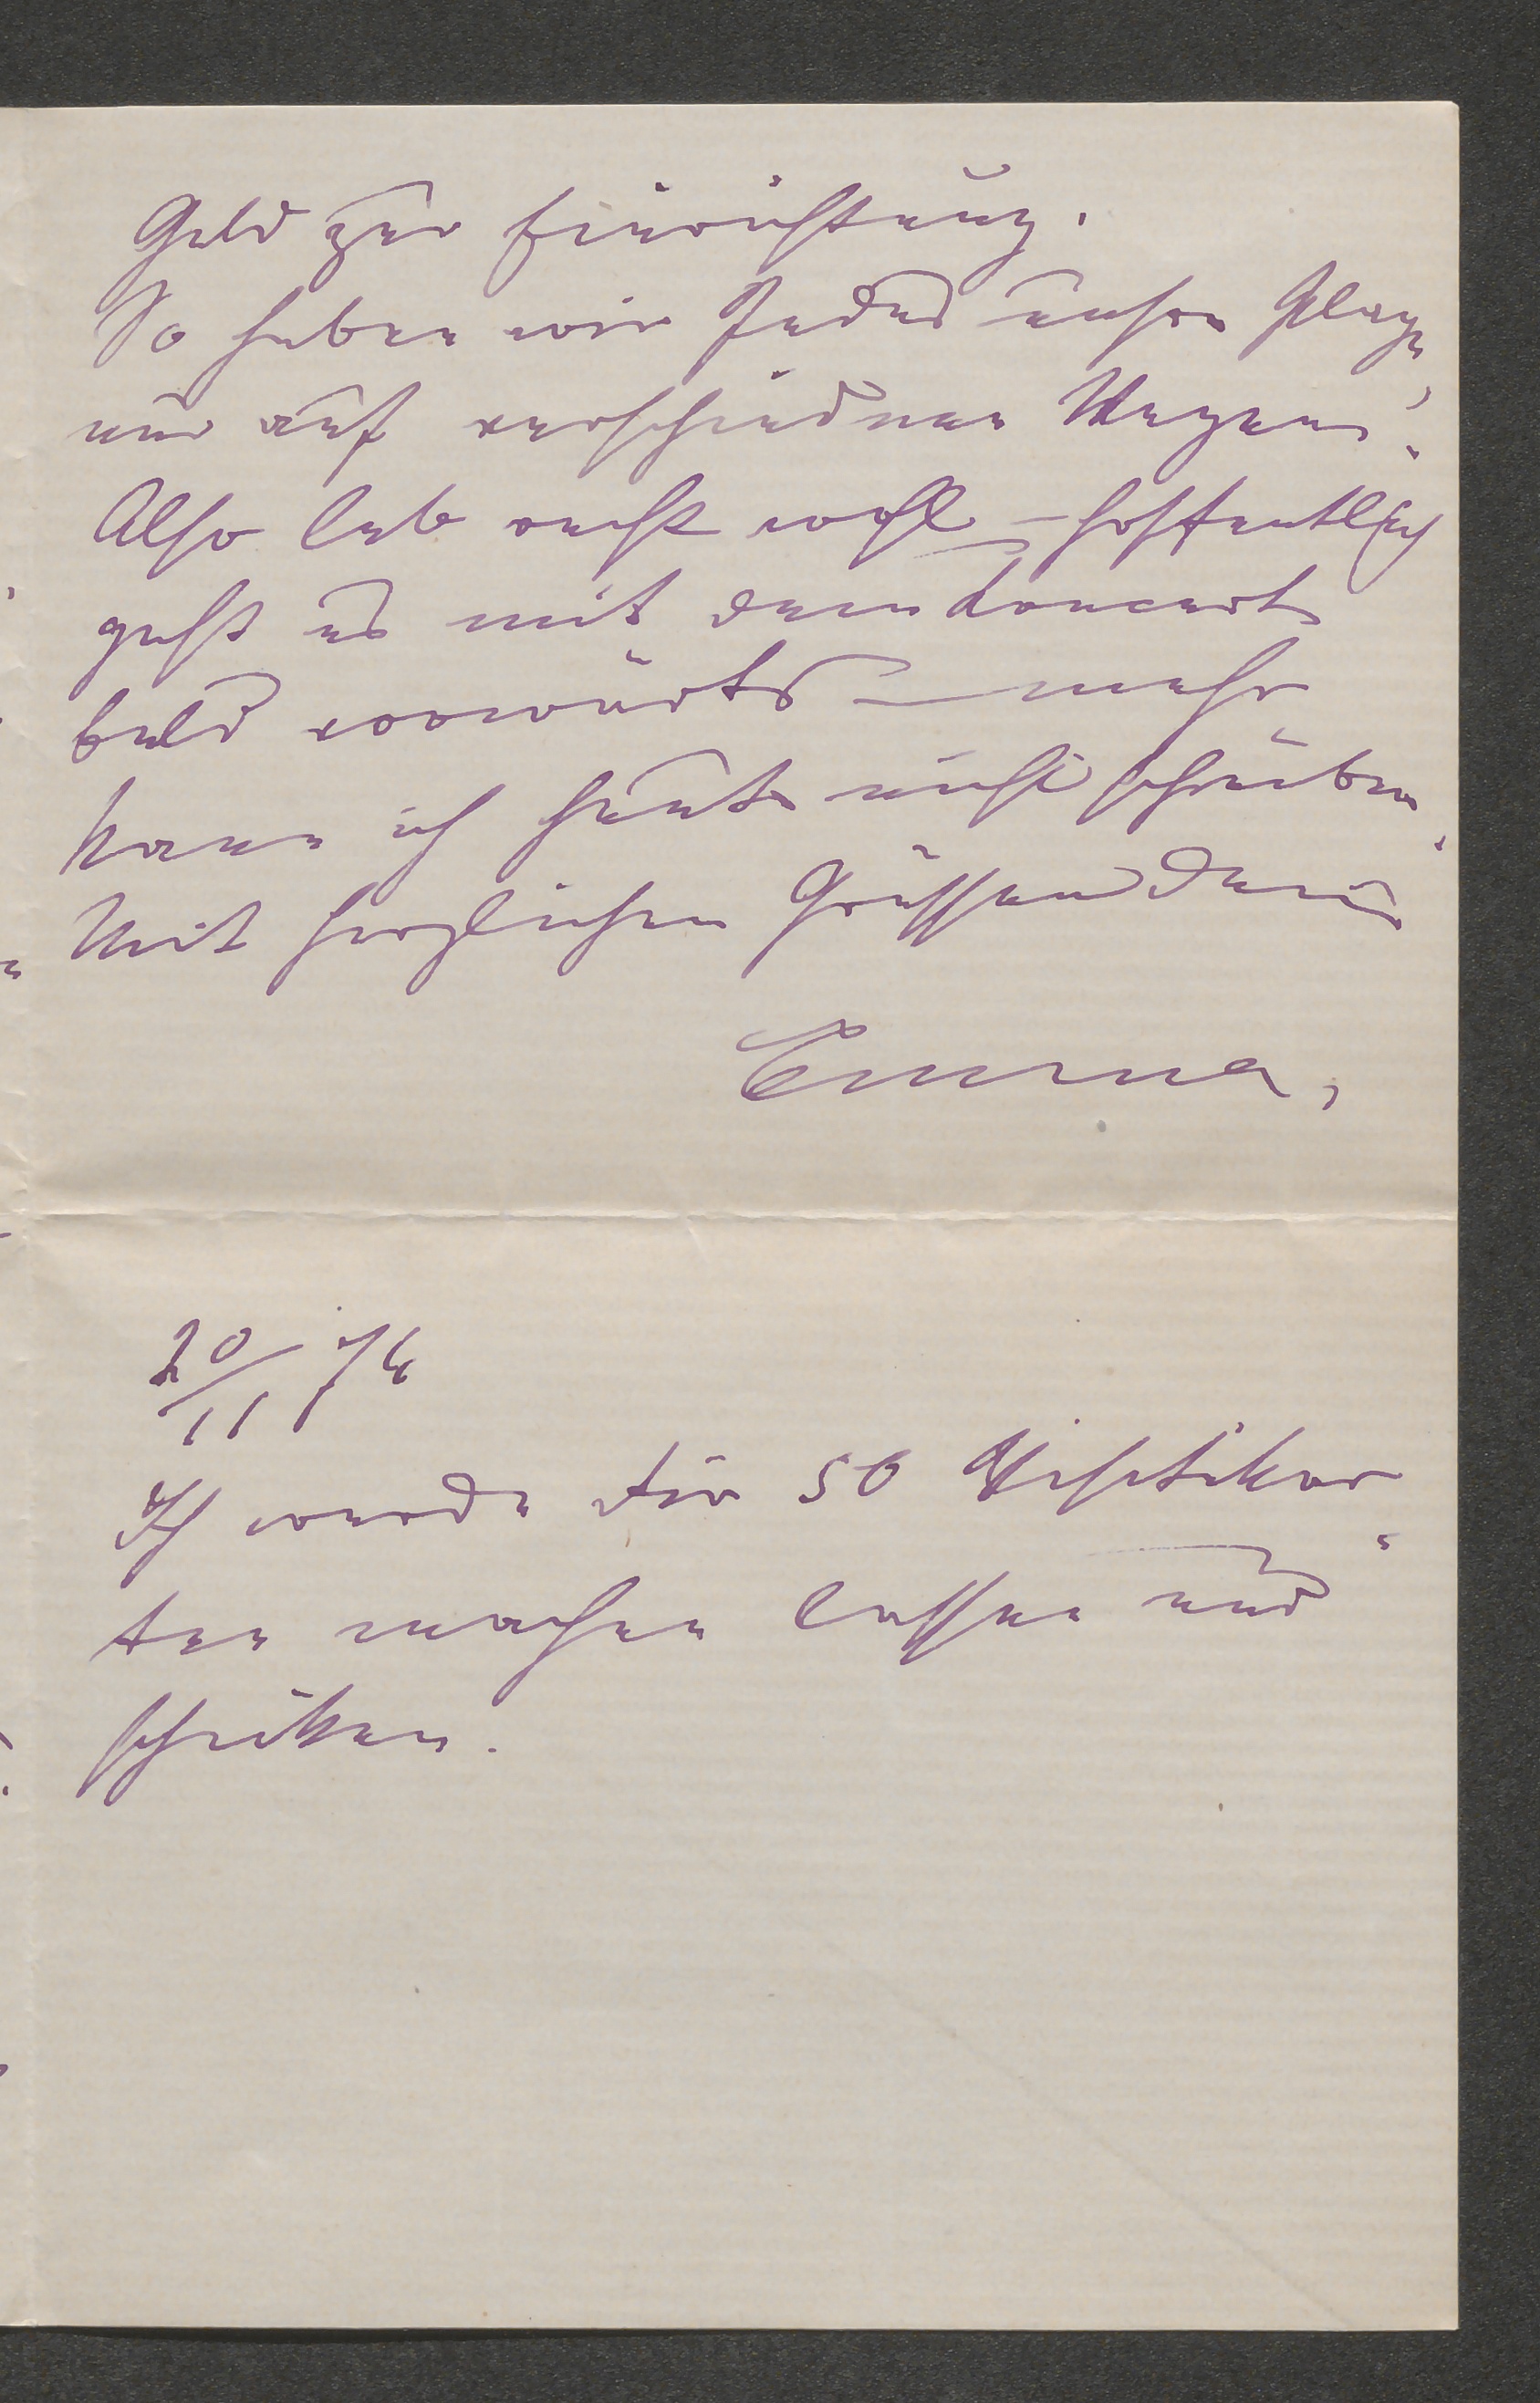 Geld zur Einrichtung.
So haben wir Jedes unsre Plage
nur auf verschiednen Wegen!
Also leb recht wohl – hoffentlich
geht es mit dem Koncert
bald vorwärts – mehr
kann ich heute nicht schreiben.
Mit herzlichen Grüssen Deine
Emma,
20/11 76
Ich werde Dir 50 Visitkar
ten machen lassen und
schicken.